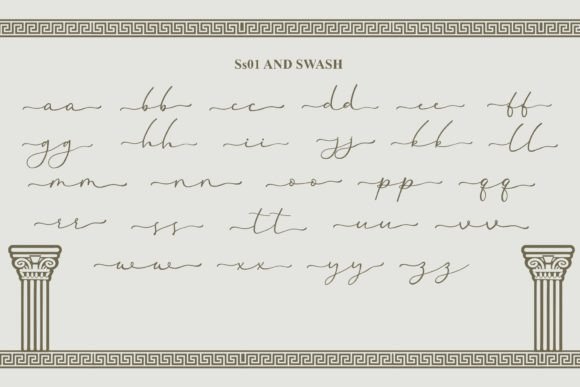 Ss01 AND SWASH
aa bb cc dd ee ff
gg hh ii jj kk ll
mm nn oo pp qq
rr ss tt uu vv
ww xx yy zz